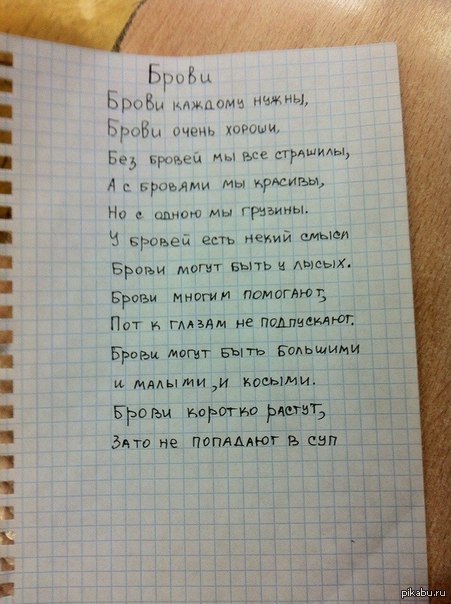 Брови
Брови каждому нужны,
Брови очень хороши,
Без бровей мы все страшилы,
А с бровями мы красивы,
Но с одною мы грузины.
У бровей есть некий смысл
Брови могут быть у лысых.
Брови многим помогают,
Пот к глазам не подпускают.
Брови могут быть большими
и малыми, и косыми.
Брови коротко растут,
Зато не попадают в суп
pikabu.ru